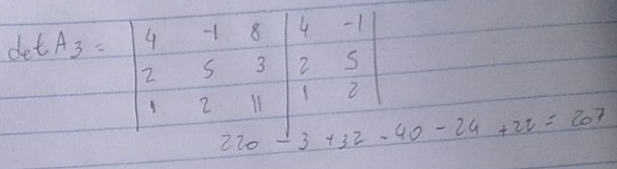 det A3 = | 4 -1 8 | 4 -1 |
2 5 3 | 2 5
1 2 11 | 1 2
220 - 3 + 32 - 40 - 24 + 22 = 207